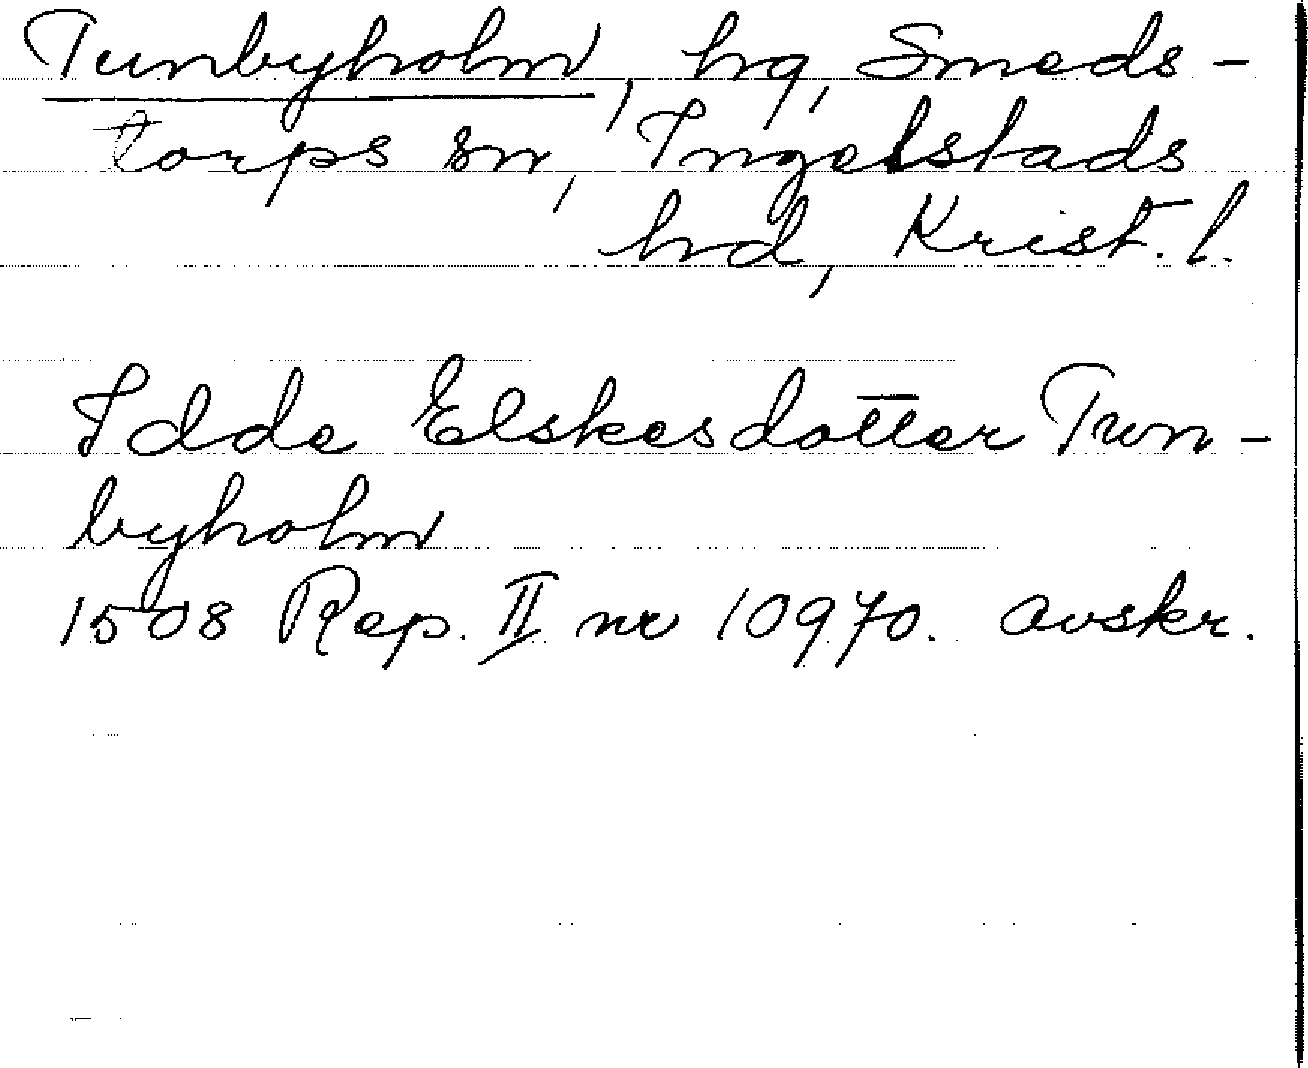 Tunbyholm, hg, Smeds-
torps sn, Ingelstads
hd, Krist. l.
Idde Elskesdotter Twn-
byholm
1508 Rep. II nr 10970. avskr.